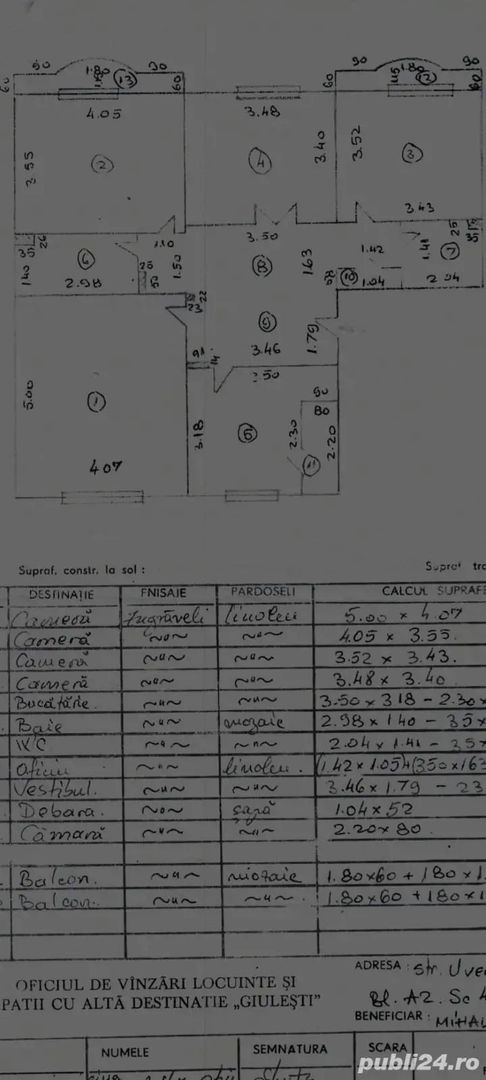 90 1.80 90 90 1.80 90
60 1.5 13 60 60 1.5 12 60
4.05 3.48
3.55 2 4 3.40 3.52 3
3.43
35 26 1.10 3.50 1.42 1.41 25 35
1.40 6 26 1.50 8 1.63 7
2.98 50 58 10 1.04 2.04
23 22 9
5.00 1 91 14 3.46 1.79
2.50 90
3.18 5 2.30 80 2.20
4.07 11
Supraf. constr. la sol : Supraf tra
DESTINAȚIE FNISAJE PARDOSELI CALCUL SUPRAFE
Cameră Zugrăveli linoleu 5.00 x 4.07
Cameră ~"~ ~"~ 4.05 x 3.55.
Cameră ~"~ ~"~ 3.52 x 3.43.
Cameră ~"~ ~"~ 3.48 x 3.40
Bucătărie. ~"~ ~"~ 3.50 x 3.18 - 2.30x
Baie ~"~ mozaic 2.98 x 1.40 - 35x
WC ~"~ ~"~ 2.04 x 1.41 - 35x
Oficiu ~"~ linoleu. (1.42 x 1.05)+(350x163
Vestibul. ~"~ ~"~ 3.46 x 1.79 - 23
Debara. ~"~ șapă 1.04 x 52
Cămară ~"~ ~"~ 2.20 x 80
Balcon. ~"~ mozaic 1.80x60 + 180x1
Balcon. ~"~ ~"~ 1.80x60 + 180x1
OFICIUL DE VÎNZĂRI LOCUINTE ȘI
PATII CU ALTĂ DESTINATIE „GIULEȘTI”
ADRESA : Str. Uve
Bl. A2. Sc 4
BENEFICIAR : MIHAL
NUMELE SEMNATURA SCARA
publi24.ro